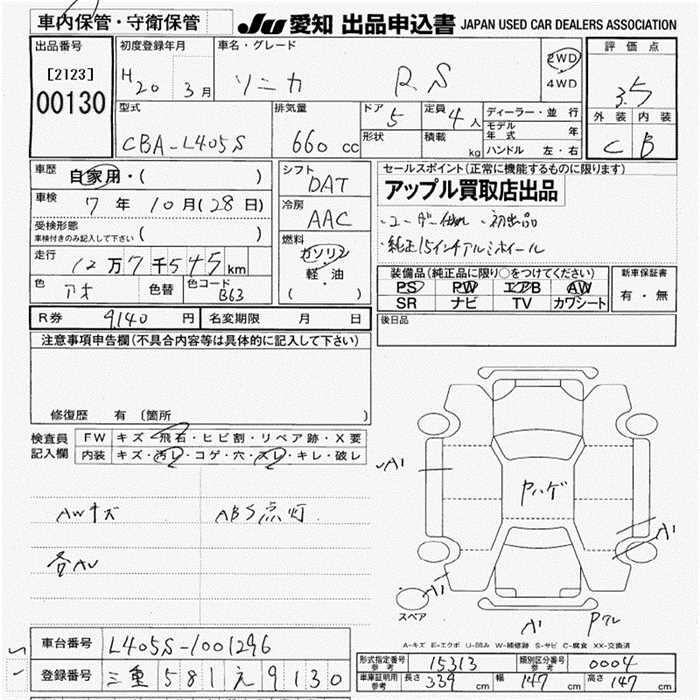 車内保管・守衛保管 JU 愛知 出品申込書 JAPAN USED CAR DEALERS ASSOCIATION
出品番号 [2123] 00130
初度登録年月 H20 3月
車名・グレード ソニカ RS
2WD 4WD
評価点 3.5
外装 内装
C B
型式 CBA-L405S
排気量 660 cc
ドア 5 定員 4人
形状 積載 kg
ディーラー・並行
モデル年式 年
ハンドル 左・右
車歴 自家用・( )
車検 7年10月(28日)
受検形態 車検付きのみ記入して下さい ( )
走行 12万7千545km
色 アオ 色替 色コード B63
シフト DAT
冷房 AAC
燃料 ガソリン 軽・油 ( )
セールスポイント(正常に機能するものに限ります)
アップル買取店出品
・ユーザー仕入 ・初出品
・純正15インチアルミホイール
装備品(純正品に限り○をつけてください)
PS PW エアB AW
SR ナビ TV カワシート
新車保証書 有・無
R券 9,140 円 名変期限 月 日
後日品
注意事項申告欄(不具合内容等は具体的に記入して下さい)
修復歴 有 〔箇所 〕
検査員記入欄
FW キズ・飛石・ヒビ割・リペア跡・X要
内装 キズ・汚レ・コゲ・穴・スレ・キレ・破レ
AWキズ ABS点灯
各AU
A1
ヤハゲ
A1
A1
スペア
A1 Pクレ
A-キズ E-エクボ U-凹み W-補修跡 S-サビ C-腐食 XX-交換済
車台番号 L405S-1001296
登録番号 三重 581 え 9130
形式指定番号 参考 15313 類別区分番号 参考 0004
車庫証明用 参考 長さ 339 cm 幅 147 cm 高さ 147 cm